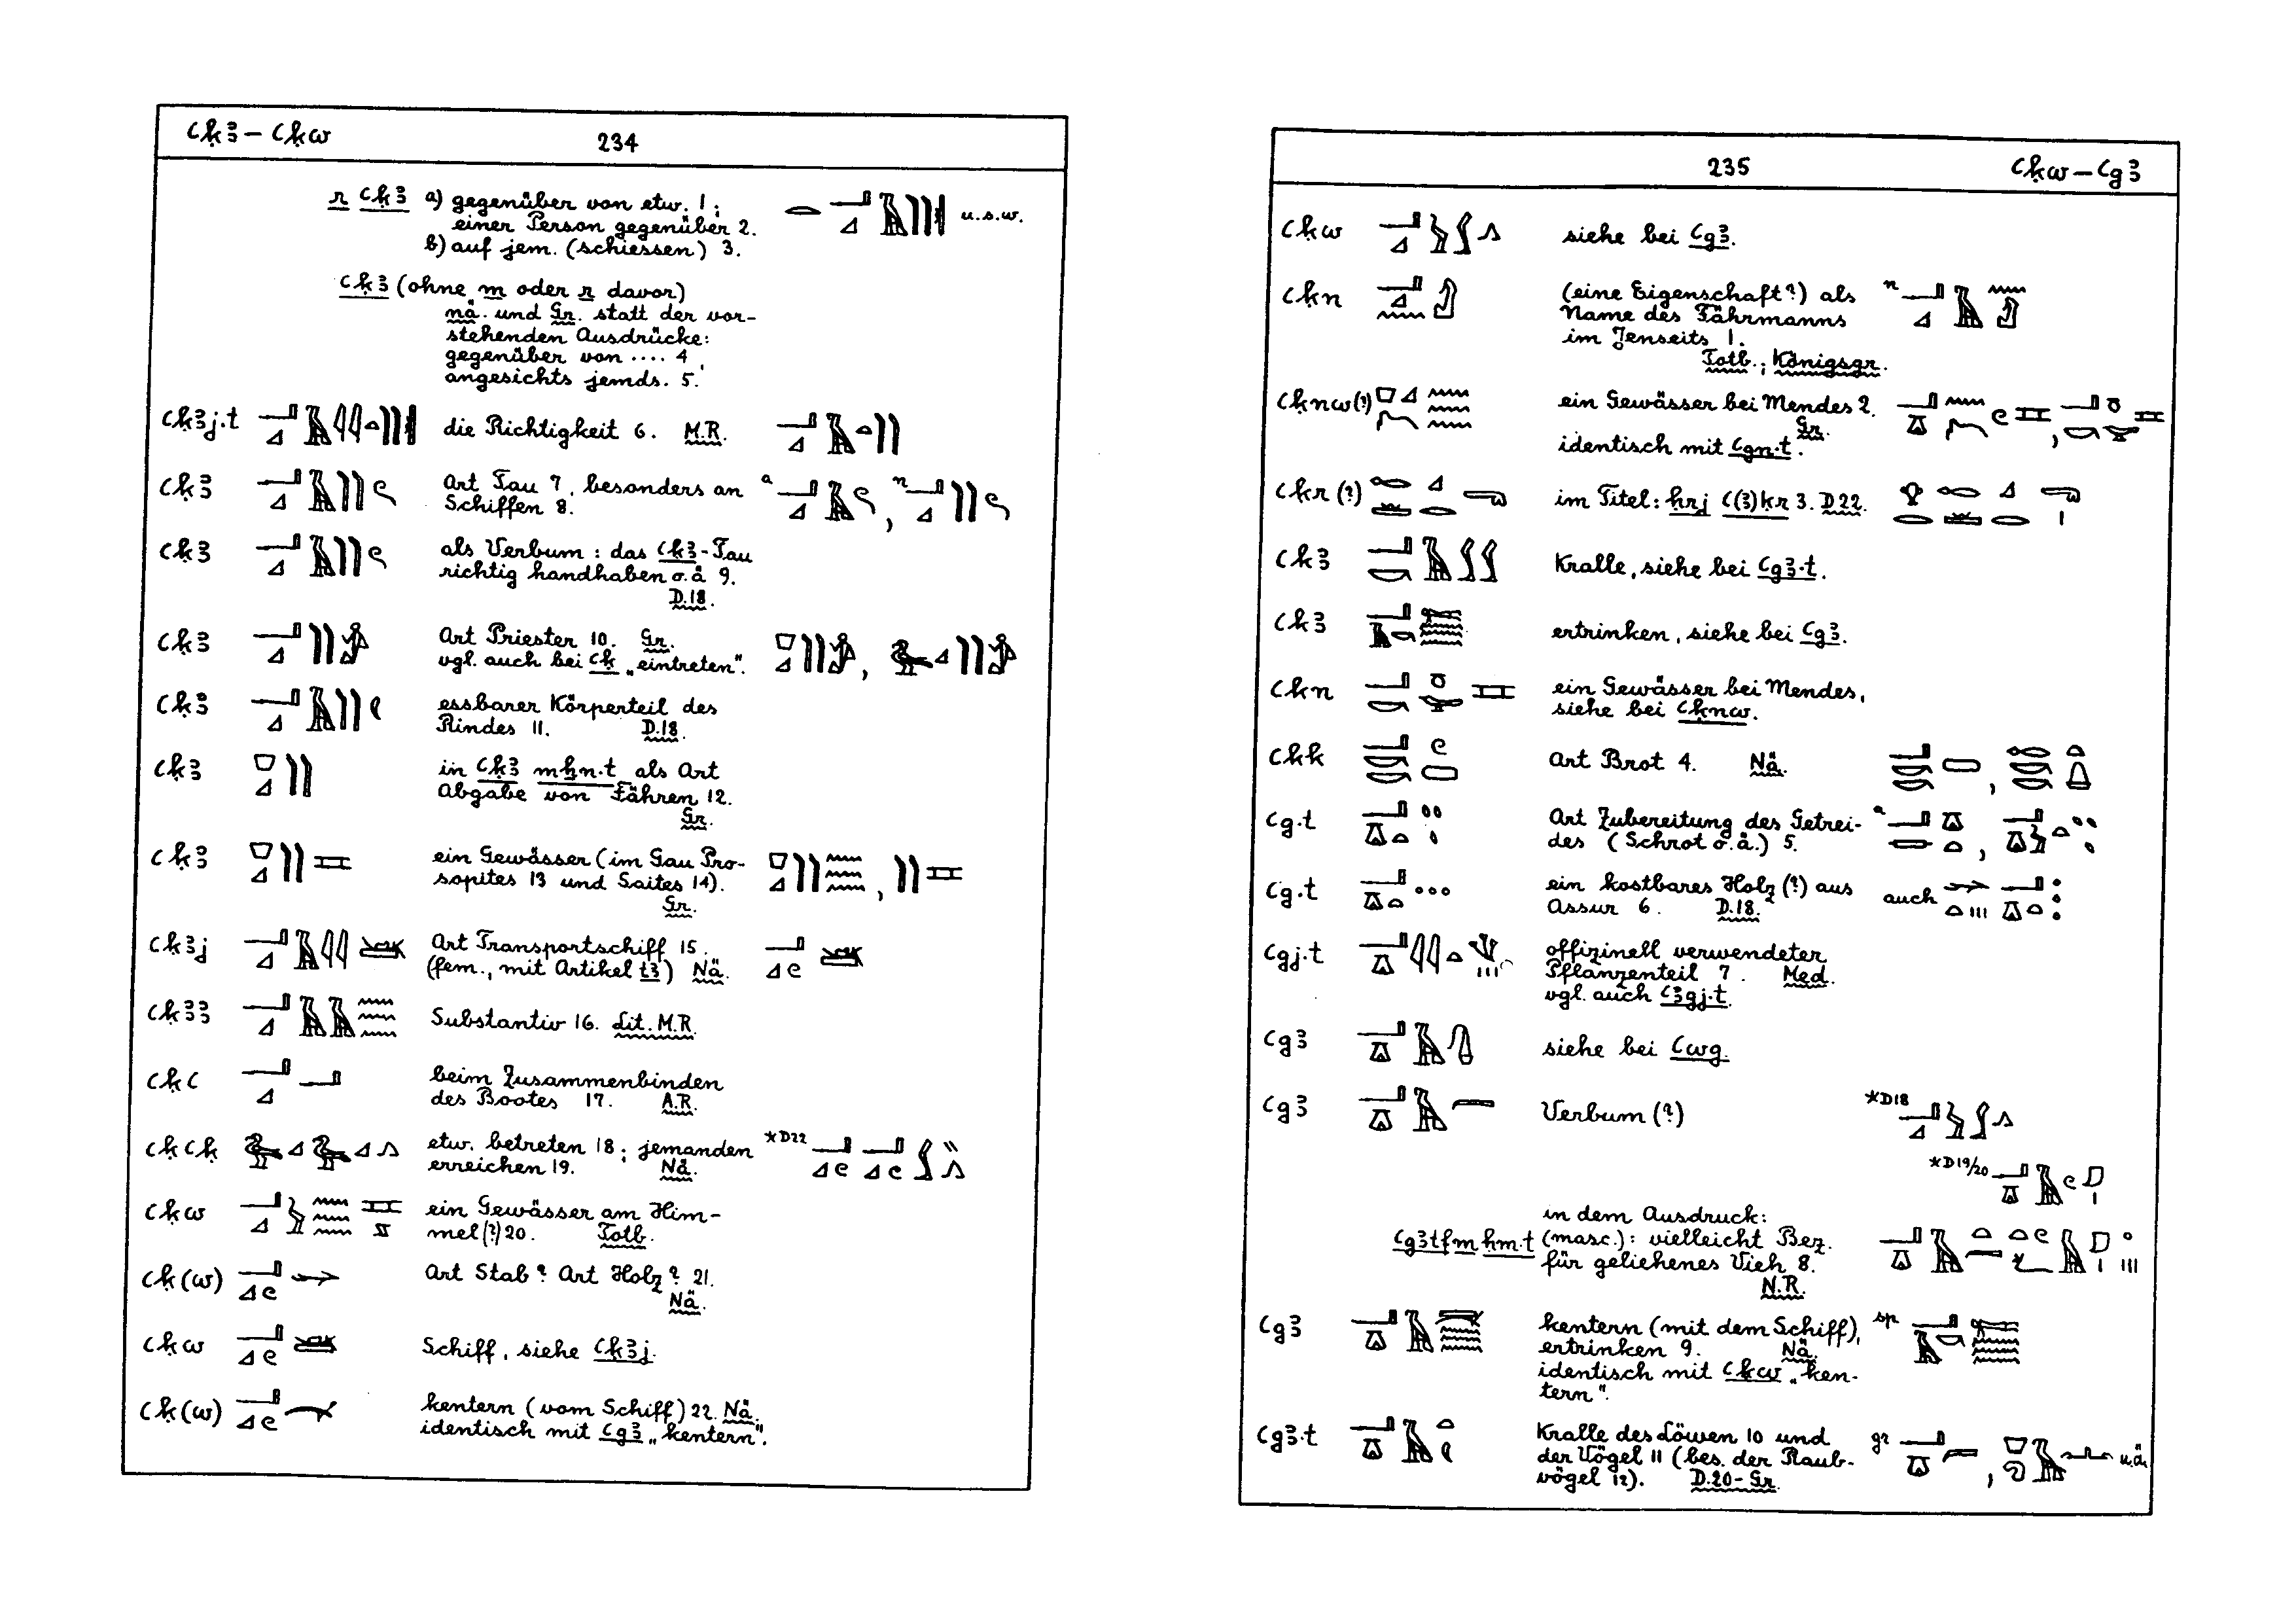 ꜥḳꜣ – ꜥḳw
234
r ꜥḳꜣ a) gegenüber von etw. 1;
einer Person gegenüber 2.
b) auf jem. (schiessen) 3.
u.s.w.
ꜥḳꜣ (ohne m oder r davor)
nä. und Gr. statt der vor-
stehenden Ausdrücke:
gegenüber von .... 4
angesichts jemds. 5.
ꜥḳꜣj.t die Richtigkeit 6. M.R.
ꜥḳꜣ Art Tau 7, besonders an a , n
Schiffen 8.
ꜥḳꜣ als Verbum: das ꜥḳꜣ-Tau
richtig handhaben o.ä 9.
D.18.
ꜥḳꜣ Art Priester 10. Gr.
vgl. auch bei ꜥḳ „eintreten“. ,
ꜥḳꜣ essbarer Körperteil des
Rindes 11. D.18.
ꜥḳꜣ in ꜥḳꜣ mẖn.t als Art
Abgabe von Fähren 12.
Gr.
ꜥḳꜣ ein Gewässer (im Gau Pro-
sopites 13 und Saites 14). ,
Gr.
ꜥḳꜣj Art Transportschiff 15.
(fem., mit Artikel tꜣ) Nä.
ꜥḳꜣꜣ Substantiv 16. Lit. M.R.
ꜥḳꜥ beim Zusammenbinden
des Bootes 17. A.R.
ꜥḳꜥḳ etw. betreten 18; jemanden *D22
erreichen 19. Nä.
ꜥḳw ein Gewässer am Him-
mel(?) 20. Totb.
ꜥḳ(w) Art Stab? Art Holz? 21.
Nä.
ꜥḳw Schiff, siehe ꜥḳꜣj.
ꜥḳ(w) kentern (vom Schiff) 22. Nä.
identisch mit ꜥgꜣ „kentern“.
235
ꜥḳw – ꜥgꜣ
ꜥḳw siehe bei ꜥgꜣ.
ꜥḳn (eine Eigenschaft?) als n
Name des Fährmanns
im Jenseits 1.
Totb.; Königsgr.
ꜥḳnw(?) ein Gewässer bei Mendes 2. ,
Gr.
identisch mit ꜥgn.t.
ꜥḳr (?) im Titel: ḥrj ꜥ(ꜣ)ḳr 3. D22.
ꜥkꜣ Kralle, siehe bei ꜥgꜣ.t.
ꜥkꜣ ertrinken, siehe bei ꜥgꜣ.
ꜥkn ein Gewässer bei Mendes,
siehe bei ꜥḳnw.
ꜥkk Art Brot 4. Nä. ,
ꜥg.t Art Zubereitung des Getrei- a ,
des (Schrot o.ä.) 5.
ꜥg.t ein kostbares Holz (?) aus auch
Assur 6. D.18.
ꜥgj.t offizinell verwendeter
Pflanzenteil 7. Med.
vgl. auch ꜥꜣgj.t.
ꜥgꜣ siehe bei ꜥwg.
ꜥgꜣ Verbum (?) *D18
*D19/20
in dem Ausdruck:
ꜥgꜣtfm ḥm.t (masc.): vielleicht Bez.
für geliehenes Vieh 8.
N.R.
ꜥgꜣ kentern (mit dem Schiff), sp
ertrinken 9. Nä.
identisch mit ꜥḳw „ken-
tern“.
ꜥgꜣ.t Kralle des Löwen 10 und gr , u.ä.
der Vögel 11 (bes. der Raub-
vögel 12). D.20 – Gr.